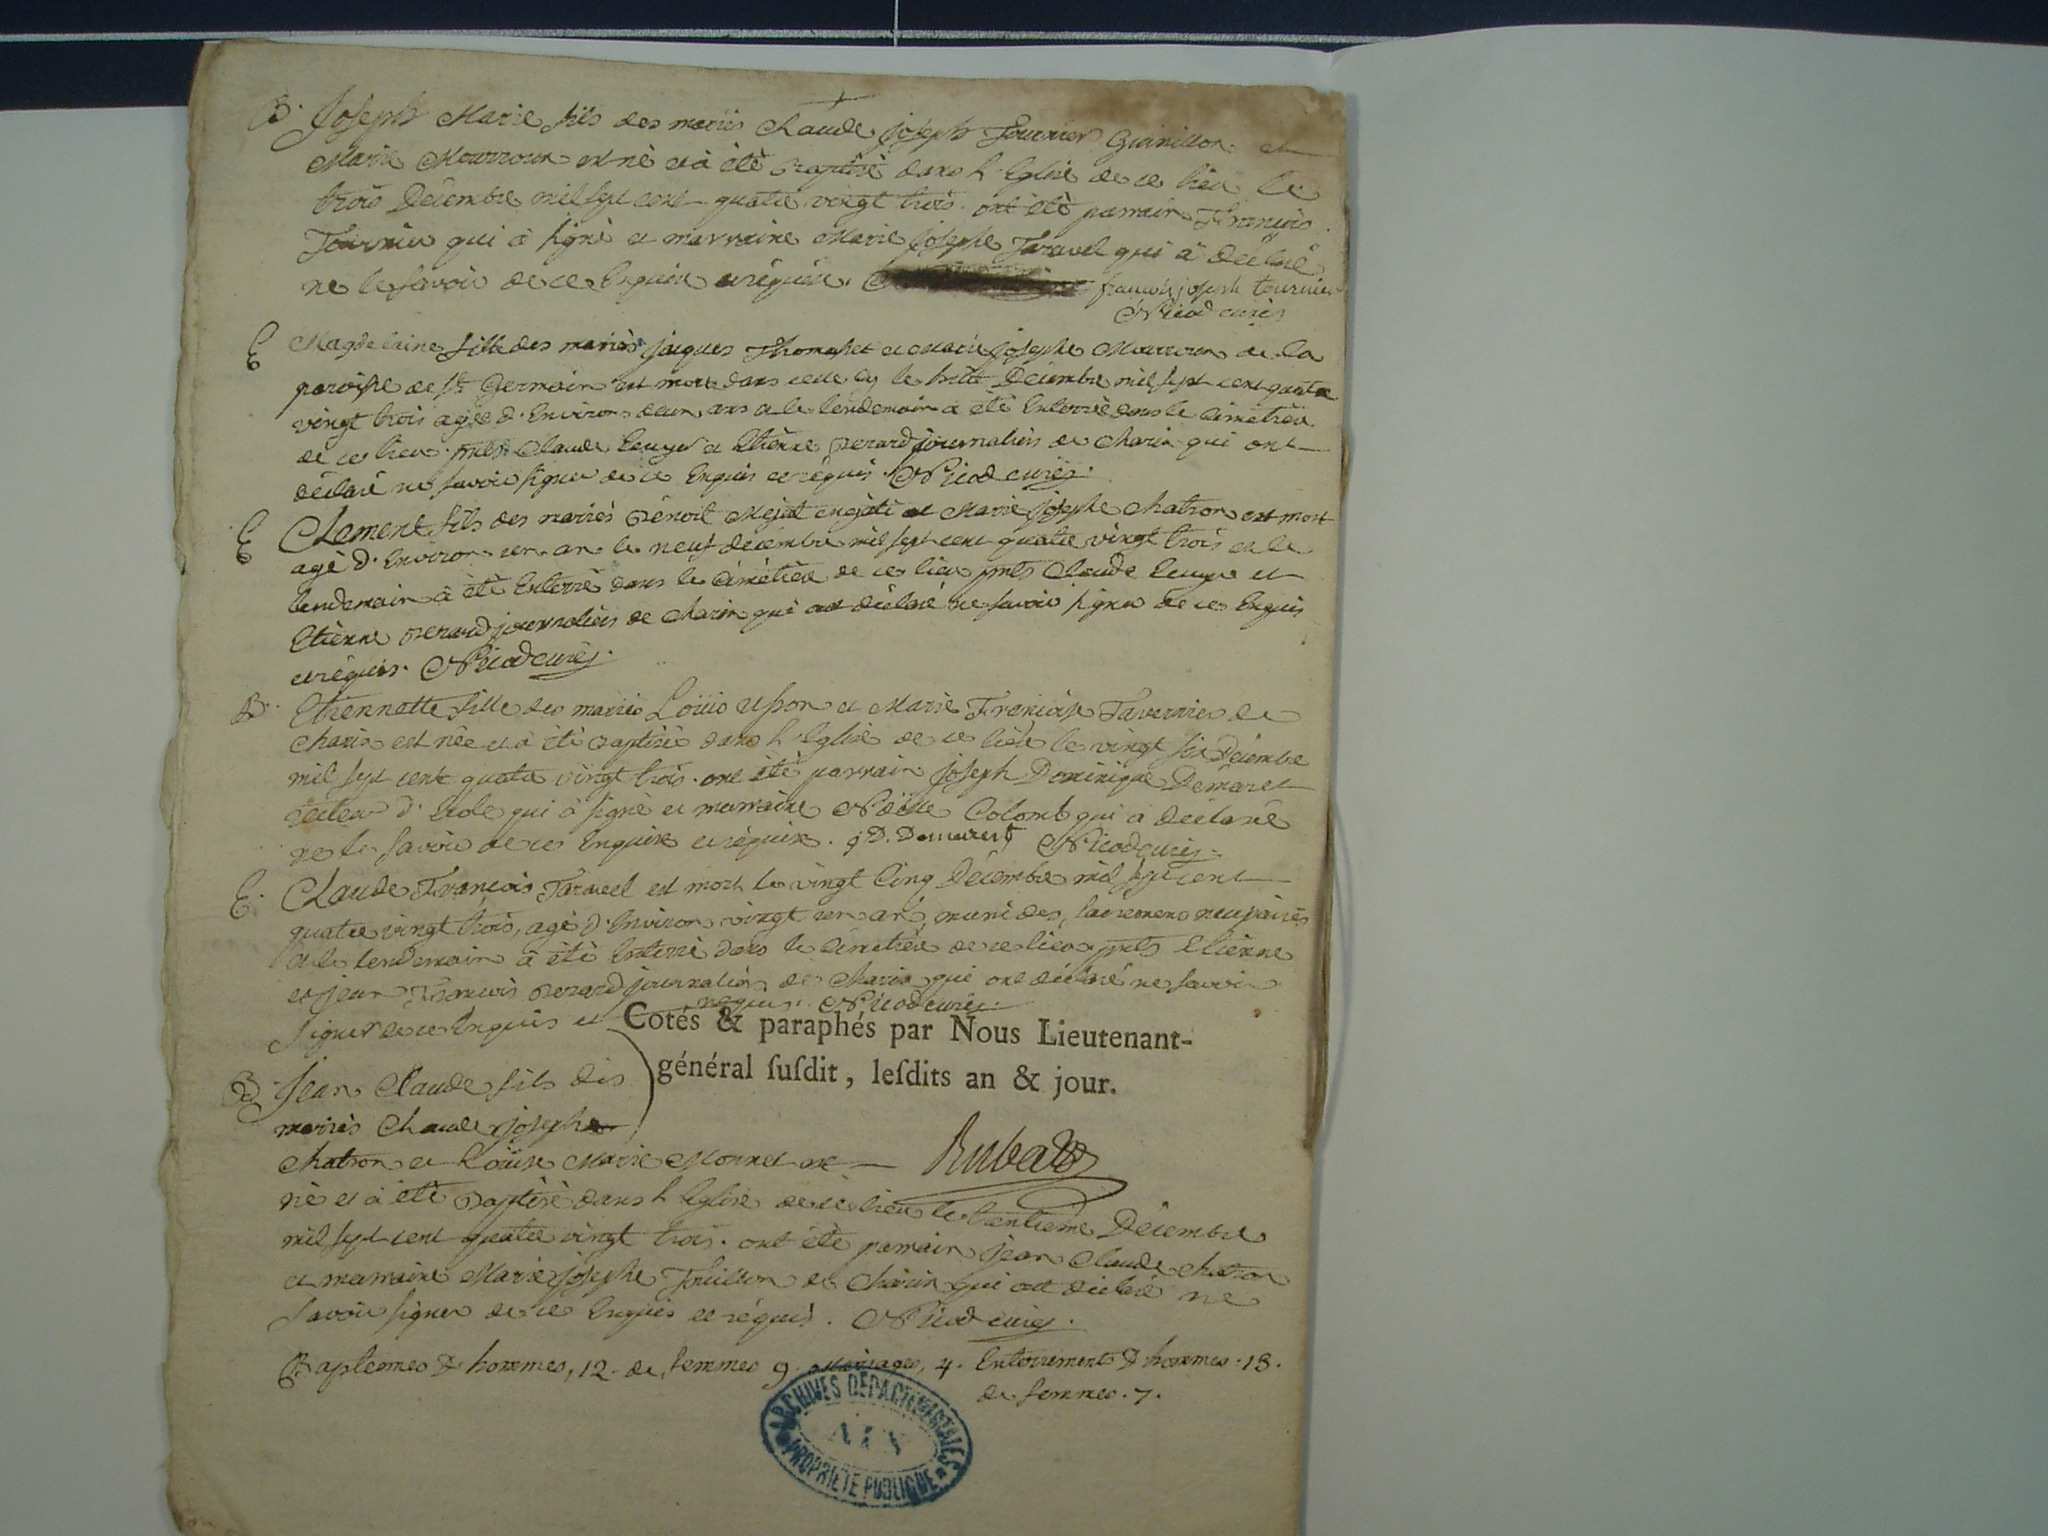 B. Joseph Marie fils des mariés Claude joseph Tournier Guinillon et
Marie Mourroux est né et à été Baptisé dans l'Eglise de ce lieu le
trois Décembre mil sept cent quatre vingt trois. ont été parrain François
Tournier qui à signé et marraine Marie josephe Taravel qui à déclaré
ne le savoir de ce Enquise et réquise. françois joseph tournier
Nicod curés
E Magdelaine fille des mariés jacques Thomasset et Marie josephe Mourroux de la
paroisse de St Germain est morte dans cette cy le huit Décembre mil sept cent quatre
vingt trois agée d'Environ deux ans et le lendemain à été Enterrée dans le Cimétière
de ce lieu pnts Claude Ecuyer et Etiènne Perard journaliers de Charix qui ont
déclaré ne savoir signer de ce Enquis et réquis. Nicod curés.
E Clement fils des mariés Bénoit Mejat et Marie josephe Chatron est mort
agé d'Environ un an le neuf décembre mil sept cent quatre vingt trois et le
lendemain à été Enterré dans le Cimétière de ce lieu pnts Claude Ecuyer et
Etiènne Perard journaliers de Charix qui ont déclaré ne savoir signer de ce Enquis
et réquis. Nicod curés.
B. Etiennette fille des mariés Loüis et Marie Françoise Tavernier de
Charix est née et à été Baptisée dans l'Eglise de ce lieu le vingt six Décembre
mil sept cent quatre vingt trois. ont été parrain joseph Dominique Demaret
récteur d'école qui à signé et marraine Noëlle Colomb qui à déclaré
ne le savoir de ce Enquise et réquise. j D. Demaret Nicod curés.
E. Claude François Taravel est mort le vingt Cinq Décembre mil sept cent
quatre vingt trois, agé d'Environ vingt un an, muni des sacremens necessaires
et le lendemain à été Enterré dans le Cimétière de ce lieu pnts Etiènne
et jean François Perard journaliers de Charix qui ont déclaré ne savoir
signer de ce Enquis et requis. Nicod curés.
Cotés & paraphés par Nous Lieutenant-
général ſuſdit, leſdits an & jour.
B. Jean Claude fils des
mariés Claude joseph
Chatron et Loüise Marie Monnet est
Rubat
né et à été Baptisé dans l'Eglise de ce lieu le trentieme Décembre
mil sept cent quatre vingt trois. ont été parrain jean Claude Chatron
et marraine Marie josephe de Charix qui ont déclaré ne
savoir signer de ce Enquis et réquis. Nicod curés.
Baptemes d'hommes, 12. de femmes 9. Mariages, 4. Enterrements d'hommes. 13.
de femmes. 7.
ARCHIVES DÉPARTEMENTALES
AIN
PROPRIÉTÉ PUBLIQUE